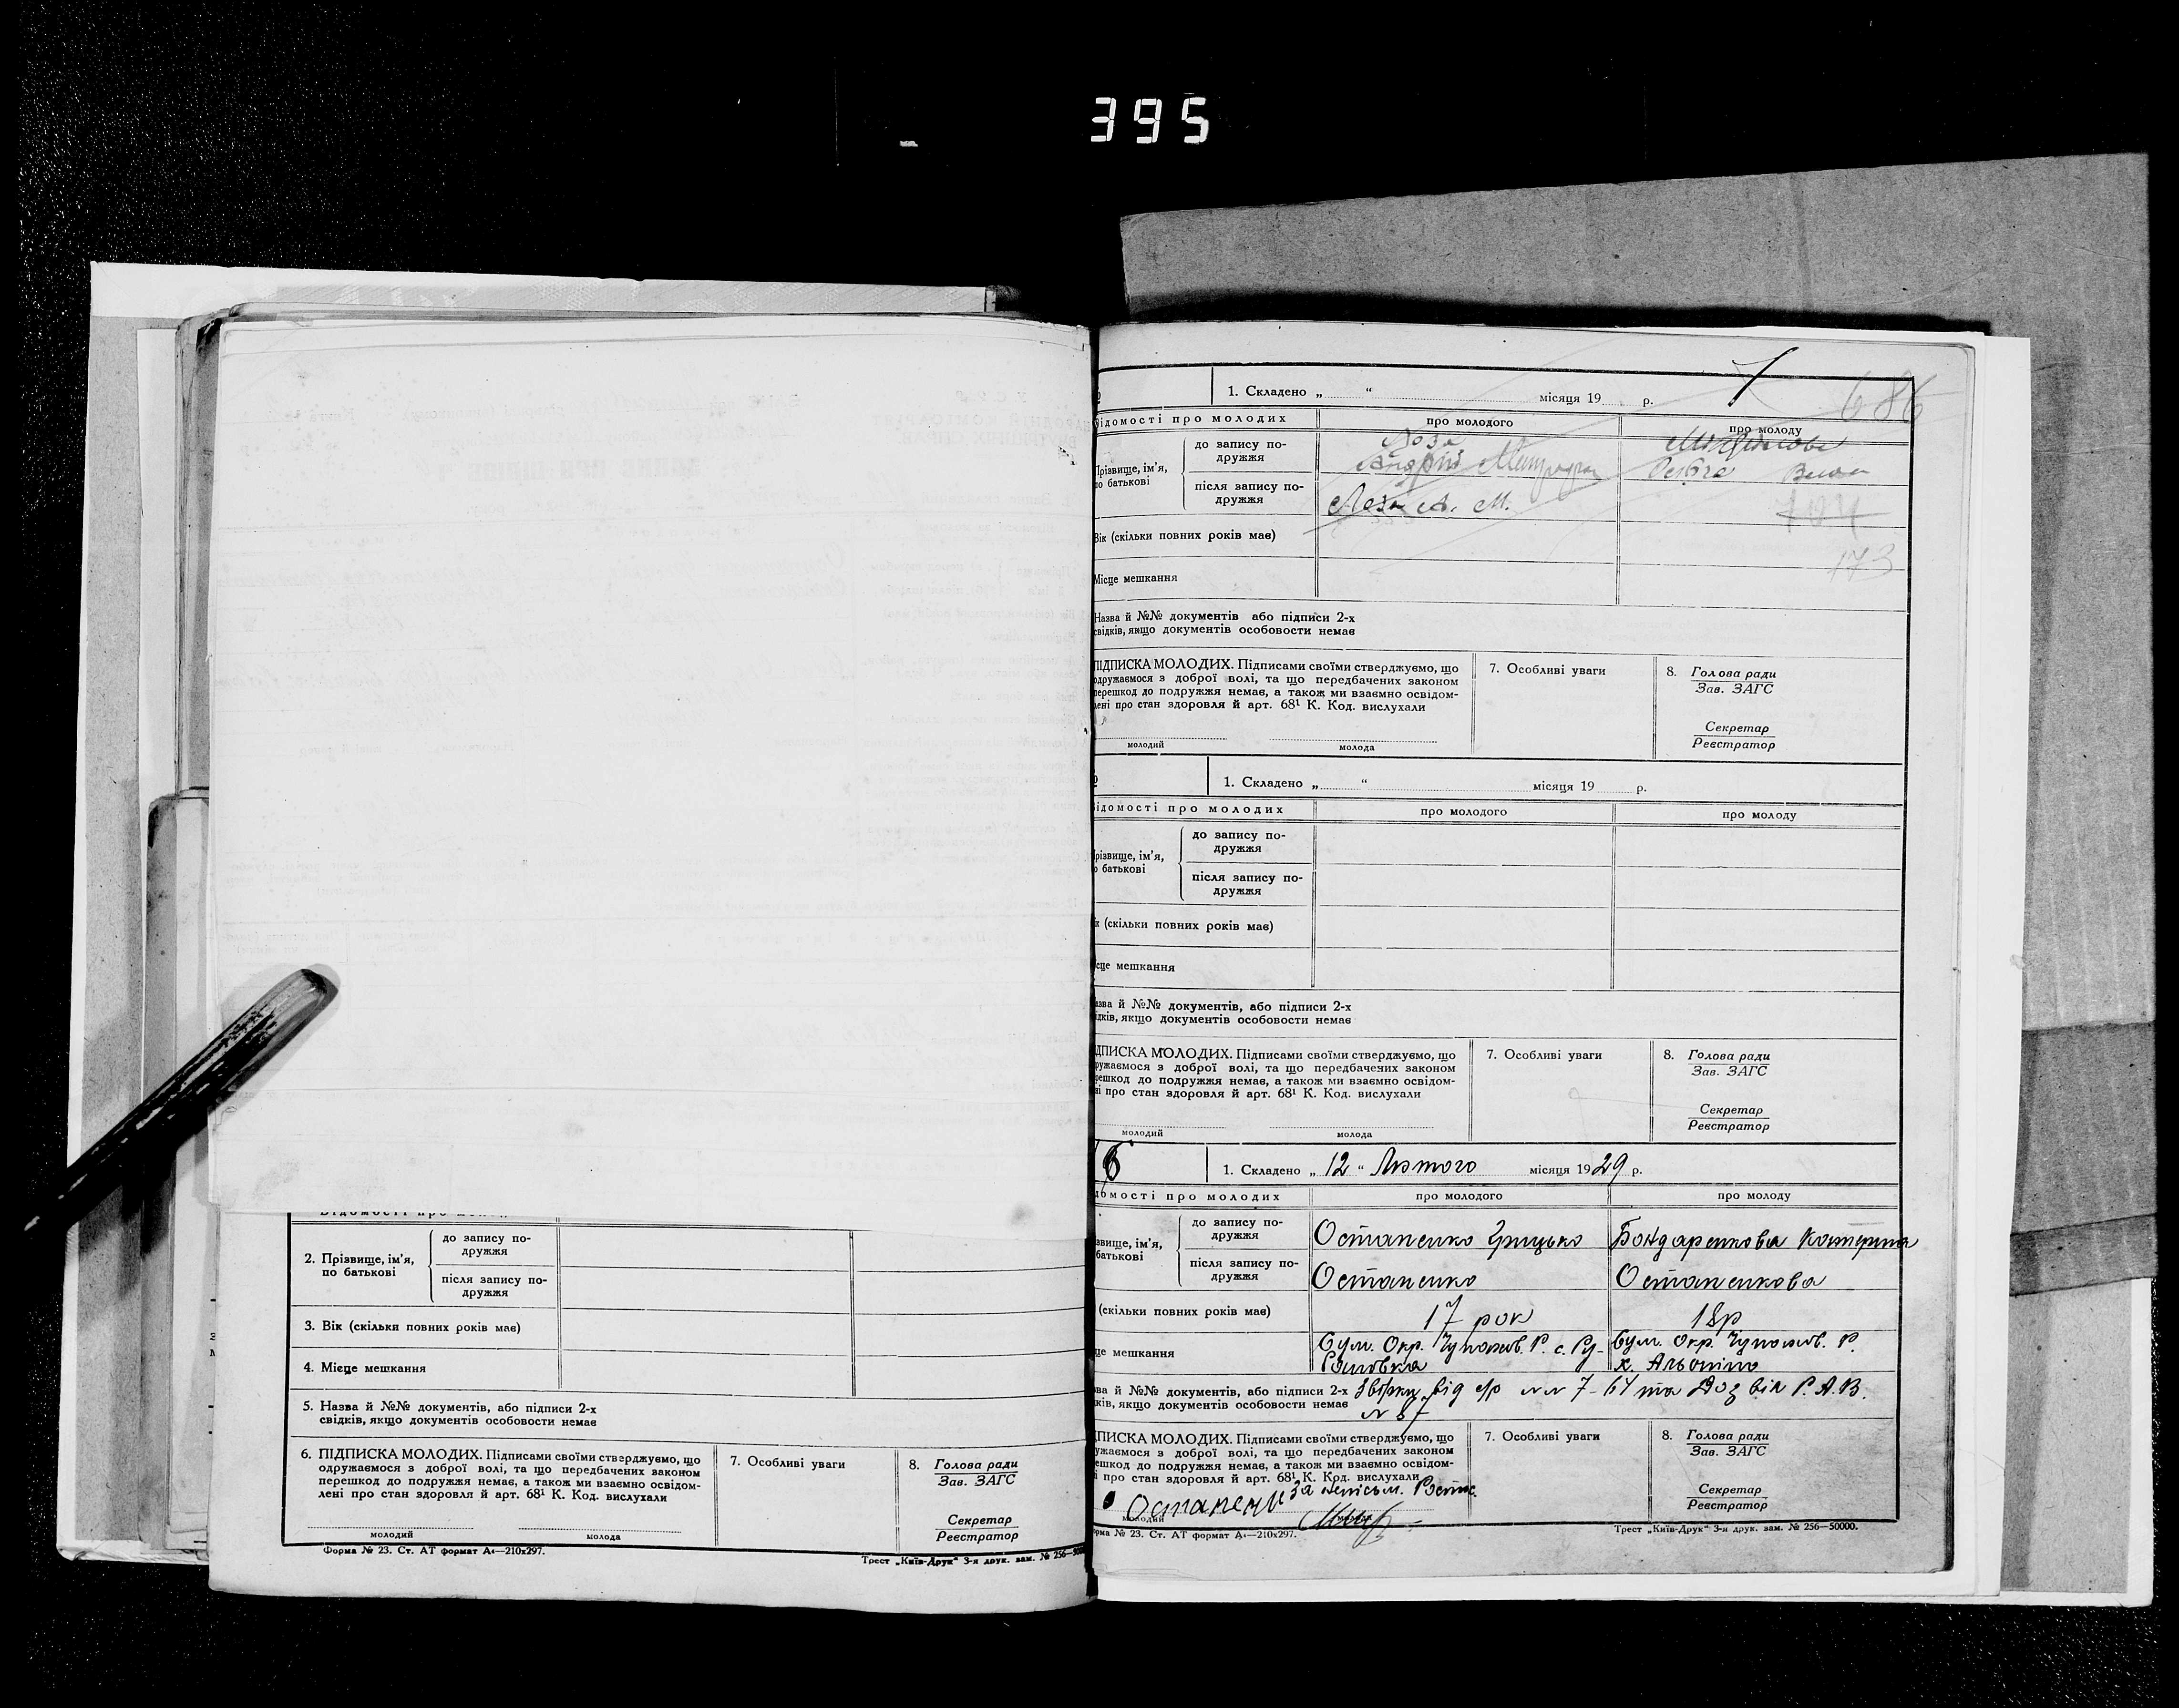 395
686
1. Складено „ “ місяця 19 р.
ідомості про молодих
про молодого
про молоду
Прізвище, ім'я,
по батькові
до запису по-
дружжя
Лоза
Андрій
після запису по-
дружжя
Лоза А. М.
704
Вік (скільки повних років має)
173
Місце мешкання
Назва й №№ документів або підписи 2-х
свідків, якщо документів особовости немає
ПІДПИСКА МОЛОДИХ. Підписами своїми стверджуємо, що
одружаємося з доброї волі, та що передбачених законом
перешкод до подружжя немає, а також ми взаємно освідом-
лені про стан здоровля й арт. 68¹ К. Код. вислухали
молодий
молода
7. Особливі уваги
8. Голова ради
Зав. ЗАГС
Секретар
Реєстратор
1. Складено „ “ місяця 19 р.
ідомості про молодих
про молодого
про молоду
різвище, ім'я,
о батькові
до запису по-
дружжя
після запису по-
дружжя
ік (скільки повних років має)
сце мешкання
азва й №№ документів, або підписи 2-х
ідків, якщо документів особовости немає
ДПИСКА МОЛОДИХ. Підписами своїми стверджуємо, що
ружаємося з доброї волі, та що передбачених законом
решкод до подружжя немає, а також ми взаємно освідом-
ні про стан здоровля й арт. 68¹ К. Код. вислухали
молодий
молода
7. Особливі уваги
8. Голова ради
Зав. ЗАГС
Секретар
Реєстратор
6
1. Складено „ 12 “ Лютого місяця 1929 р.
домості про молодих
про молодого
про молоду
звище, ім'я,
батькові
до запису по-
дружжя
Остапенко Грицько
Бондаренкова Катерина
після запису по-
дружжя
Остапенко
Остапенкова
(скільки повних років має)
17 рок
18р
це мешкання
Сум. Окр. Чупахів. Р. с. Ру-
Сум. Окр. Чупахів. Р.
х.
ва й №№ документів, або підписи 2-х
ків, якщо документів особовости немає
від с/р № № 7-64 та Дозвіл Р.А.В.
№ 87
ПИСКА МОЛОДИХ. Підписами своїми стверджуємо, що
ужаємося з доброї волі, та що передбачених законом
ешкод до подружжя немає, а також ми взаємно освідом-
і про стан здоровля й арт. 68¹ К. Код. вислухали
за неписьм.
молодий
7. Особливі уваги
8. Голова ради
Зав. ЗАГС
Секретар
Реєстратор
орма № 23. Ст. АТ формат А₄—210х297.
Трест „Київ-Друк“ 3-я друк. зам. № 256—50000.
2. Прізвище, ім'я,
по батькові
до запису по-
дружжя
після запису по-
дружжя
3. Вік (скільки повних років має)
4. Місце мешкання
5. Назва й №№ документів, або підписи 2-х
свідків, якщо документів особовости немає
6. ПІДПИСКА МОЛОДИХ. Підписами своїми стверджуємо, що
одружаємося з доброї волі, та що передбачених законом
перешкод до подружжя немає, а також ми взаємно освідом-
лені про стан здоровля й арт. 68¹ К. Код. вислухали
молодий
молода
7. Особливі уваги
8. Голова ради
Зав. ЗАГС
Секретар
Реєстратор
Форма № 23. Ст. АТ формат А₄—210х297.
Трест „Київ-Друк“ 3-я друк. зам. № 256—50